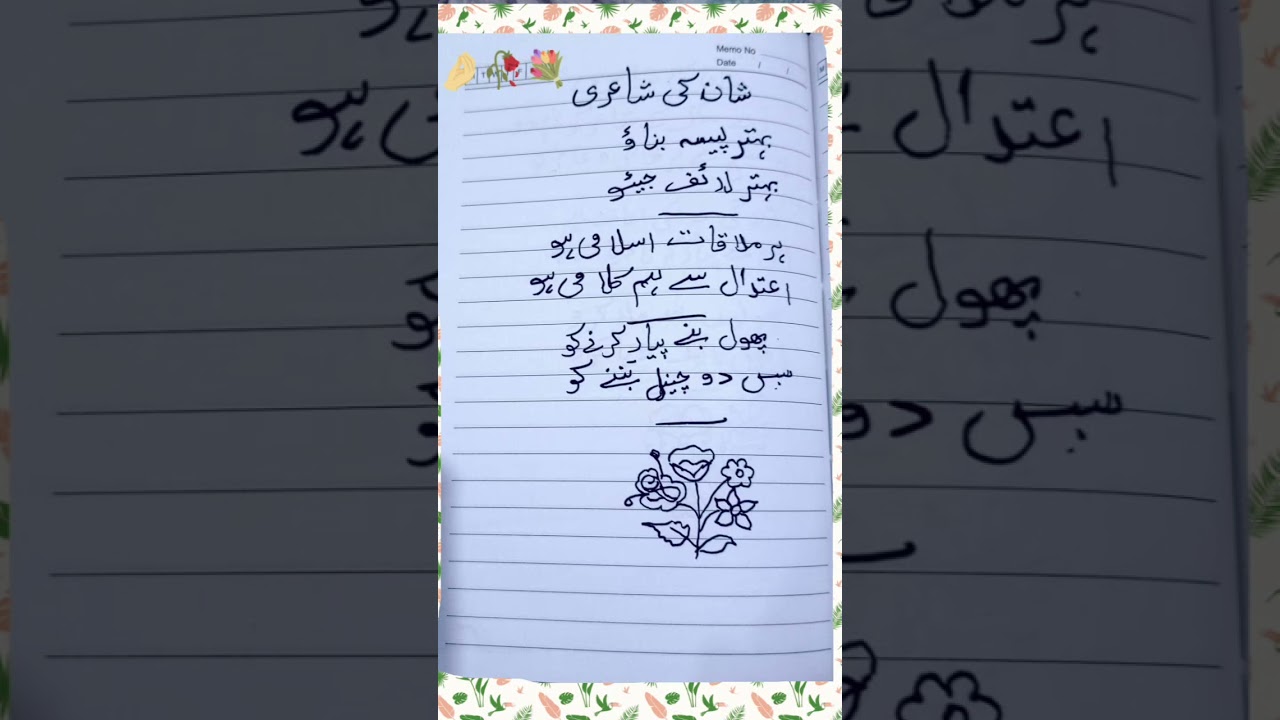 Memo No
Date / /
شان کی شاعری
بہتر پیسہ بناؤ
بہتر لائف جیئو
ہر ملاقات اسلامی ہو
اعتدال سے ہم کلامی ہو
پھول بنے پیار کرنے کو
بس دو چینل بننے کو